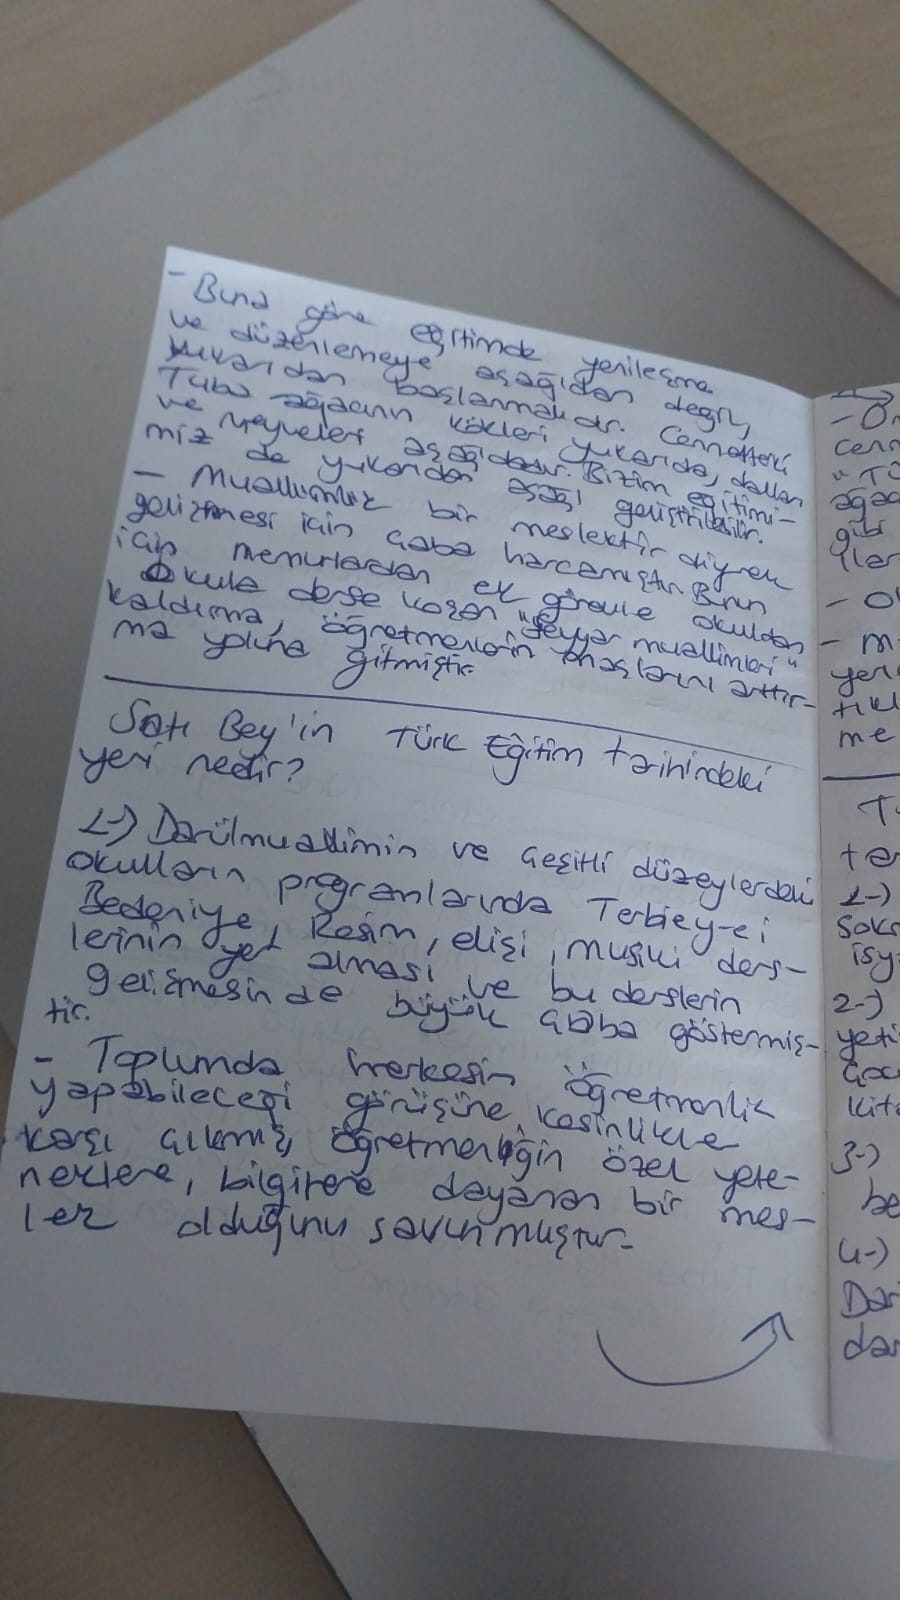 - Buna göre eğitimde yenileşme
ve düzenlemeye aşağıdan değil,
yukarıdan başlanmalıdır. Cennetteki
Tuba ağacının kökleri yukarıda, dalları
ve meyveleri aşağıdadır. Bizim eğitimi-
miz de yukarıdan aşağı geliştirilebilir.
- Muallimlik bir meslektir diyerek
gelişmesi için çaba harcamıştır. Bunun
için memurlardan ek görevle okuldan
okula derse koşan "seyyar muallimleri"
kaldırma, öğretmenlerin maaşlarını arttır-
ma yoluna gitmiştir.
Satı Bey'in Türk Eğitim tarihindeki
yeri nedir?
1-) Darülmuallimin ve çeşitli düzeylerdeki
okulların programlarında Terbiey-ei
Bedeniye, Resim, elişi, musiki ders-
lerinin yer alması ve bu derslerin
gelişmesinde büyük çaba göstermiş-
tir.
- Toplumda herkesin öğretmenlik
yapabileceği görüşüne kesinlikle
karşı çıkmış, öğretmenliğin özel yete-
neklere, bilgilere dayanan bir mes-
lek olduğunu savunmuştur.
cenn
ağaç
gibi
- m
yeri
me
T
tar
1-)
Sok
isy
2-)
yeti
kita
3-)
be
4-)
Dar
dar